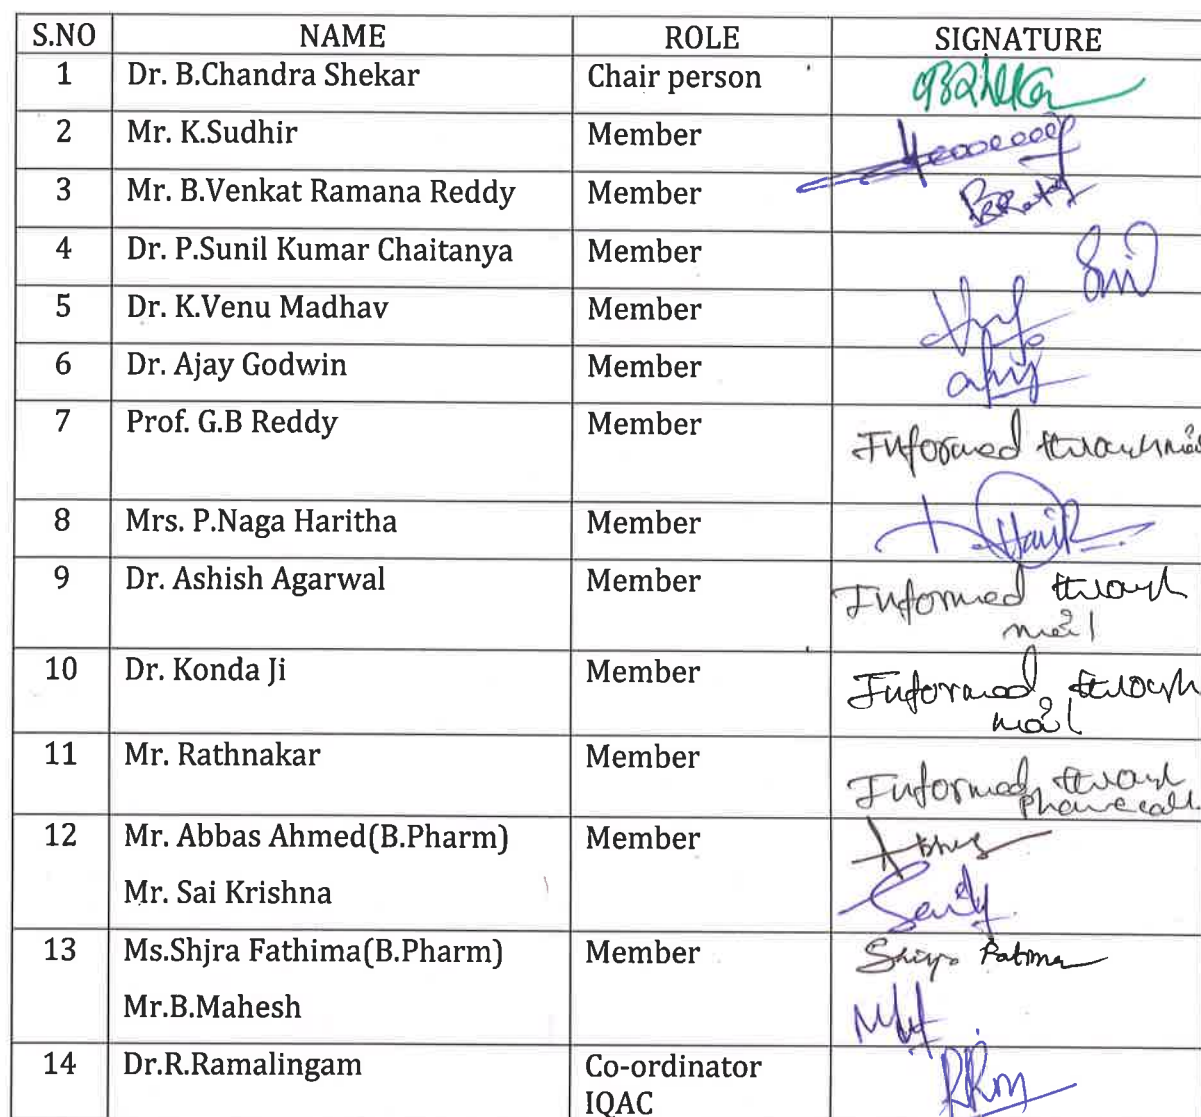 S.NO NAME ROLE SIGNATURE
1 Dr. B.Chandra Shekar Chair person
2 Mr. K.Sudhir Member
3 Mr. B.Venkat Ramana Reddy Member
4 Dr. P.Sunil Kumar Chaitanya Member
5 Dr. K.Venu Madhav Member
6 Dr. Ajay Godwin Member
7 Prof. G.B Reddy Member Informed through mail
8 Mrs. P.Naga Haritha Member
9 Dr. Ashish Agarwal Member Informed through
mail
10 Dr. Konda Ji Member Informed through
mail
11 Mr. Rathnakar Member Informed through
Phone call
12 Mr. Abbas Ahmed(B.Pharm) Member
Mr. Sai Krishna
13 Ms.Shjra Fathima(B.Pharm) Member
Mr.B.Mahesh
14 Dr.R.Ramalingam Co-ordinator
IQAC